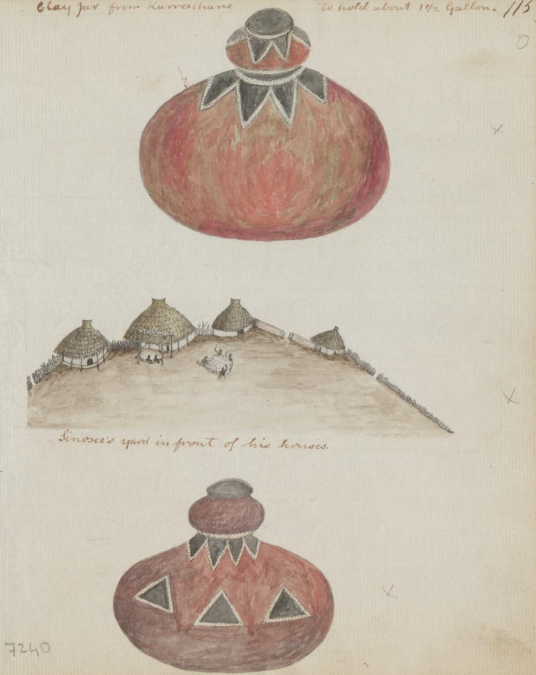 Clay Jar from Kurreechane
to hold about 1 1/2 Gallon.
115
Sinosee's yard in front of his houses.
7240